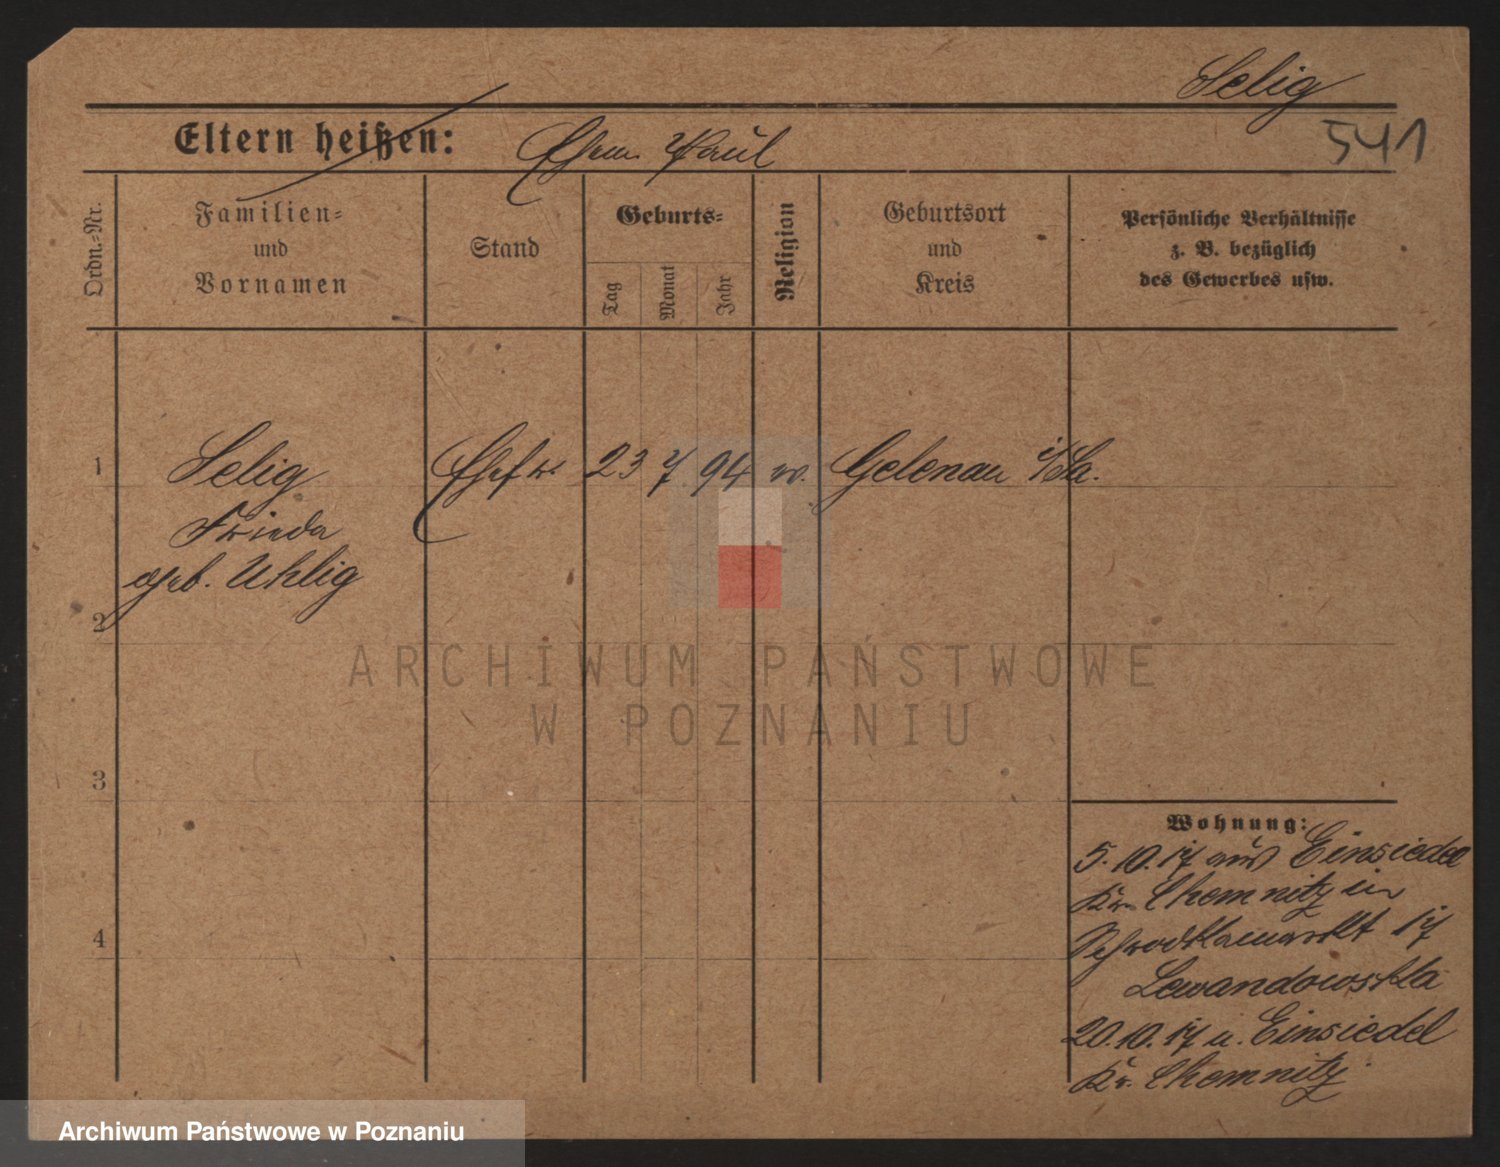 Selig
541
Eltern heißen: Ehem. Paul
Ordn.=Nr.
Familien=
und
Vornamen
Stand
Geburts=
Tag
Monat
Jahr
Religion
Geburtsort
und
Kreis
Persönliche Verhältnisse
z. B. bezüglich
des Gewerbes usw.
1 Selig Ehefr. 23 7 94 Gelenau i/Sa.
Frieda
geb. Uhlig
2
3
4
Wohnung:
5.10.17 aus Einsiedel
Kr. Chemnitz in
17
Lewandowska
20.10.17 n. Einsiedel
Kr. Chemnitz
ARCHIWUM PAŃSTWOWE
W POZNANIU
Archiwum Państwowe w Poznaniu